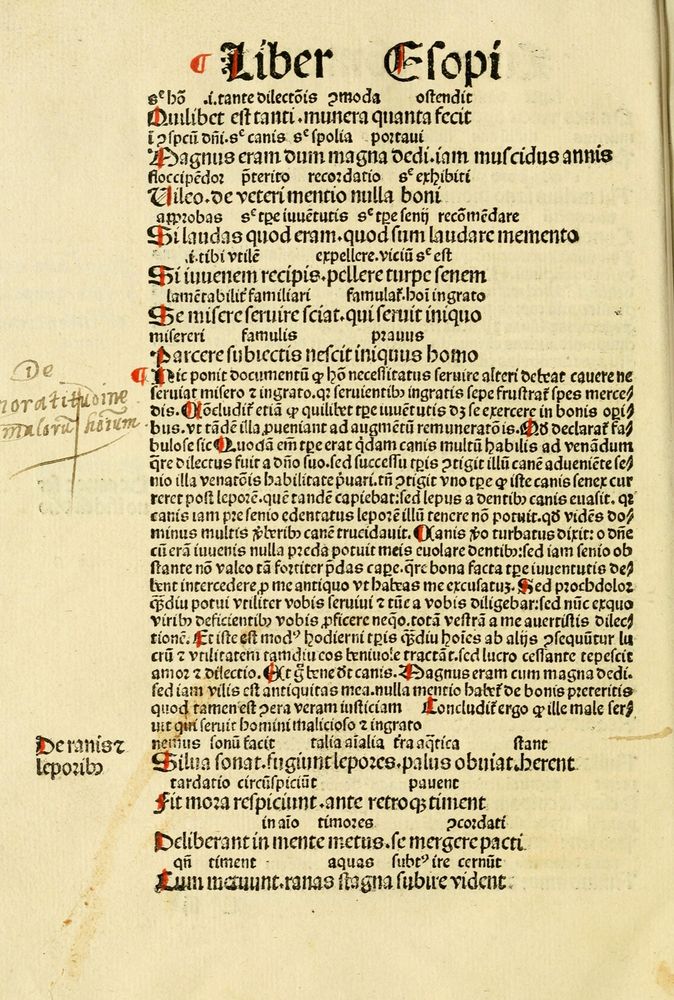 ¶ Liber Esopi
sᵉ hō .i. tante dilectōis ꝛmoda ostendit
Quilibet est tanti. munera quanta fecit
ī ꝛspcū dn̄i. sᵉ canis sᵉ spolia portaui
Magnus eram dum magna dedi. iam muscidus annis
floccipēdor p̄terito recordatio sᵉ exhibiti
Uileo. de veteri mentio nulla boni
approbas sᵉ tꝑe iuuētutis sᵉ tꝑe senij recōmēdare
Si laudas quod eram. quod sum laudare memento
.i. tibi vtilē expellere. viciū sᵉ est
Si iuuenem recipis. pellere turpe senem
lamētabiliť familiari famulať. hoīi ingrato
Se misere seruire sciat. qui seruit iniquo
misereri famulis prauus
Parcere subiectis nescit iniquus homo
De
ingratitudine
malorū hoīum
¶ Hic ponit documētū ꝙ hō necessitatus seruire alteri debeat cauere ne
seruiat misero ⁊ ingrato. qꝛ seruientibꝰ ingratis sepe frustrať spes merce⸗
dis. Cōcludiť etiā ꝙ quilibet tꝑe iuuētutis dꝫ se exercere in bonis oꝑi⸗
bus. vt tādē illa ꝓueniant ad augmētū remuneratōis. Qd̄ declarať fa⸗
bulose sic Quodā em̄ tꝑe erat qͥdam canis multū habilis ad venādum
q̄re dilectus fuit a dn̄o suo. sed successu tꝑis ꝛtigit illū canē adueniēte se⸗
nio illa venatōis habilitate p̄uari. tn̄ ꝛtigit vno tꝑe ꝙ iste canis senex cur
reret post leporē. quē tandē capiebat: sed lepus a dentibꝰ canis euasit. qꝛ
canis iam pre senio edentatus leporē illū tenere nō potuit. qd̄ vidēs do⸗
minus multis ꝟberibꝰ canē trucidauit. Canis ꝟo turbatus dixit: o dn̄e
cū erā iuuenis nulla preda potuit meis euolare dentibꝰ: sed iam senio ob
stante nō valeo tā fortiter p̄das caꝑe. q̄re bona facta tꝑe iuuentutis de⸗
bent intercedere ꝓ me antiquo vt habeas me excusatuꝫ. Sed prochdolor
qͣdiu potui vtiliter vobis seruiui ⁊ tūc a vobis diligebar: sed nūc exquo
viribꝰ deficientibꝰ vobis ꝓficere neqͦo. totā vestrā a me auertistis dilec⸗
tionē. Et iste est modꝰ hodierni tꝑis qͣdiu hoīes ab alijs ꝛsequūtur lu
crū ⁊ vtilitatem tamdiu eos beniuole tractāt. sed lucro cessante tepescit
amor ⁊ dilectio. Et g̊ bene dr̄t canis. Magnus eram cum magna dedi.
sed iam vilis est antiquitas mea. nulla mentio habeť de bonis preteritis
quod tamen est ꝛtra veram iusticiam Concludiť ergo ꝙ ille male ser⸗
uit qui seruit homini malicioso ⁊ ingrato
De ranis ⁊
leporibꝰ
nemus sonū facit talia aīalia tr̄a aq̄tica stant
Silua sonat. fugiunt lepores. palus obuiat. herent
tardatio circūspiciūt pauent
Fit mora respiciunt. ante retroqꝫ timent
in aīo timores ꝛcordati
Deliberant in mente metus. se mergere pacti
qn̄ timent aquas subtꝰ ire cernūt
Cum metuunt. ranas stagna subire vident